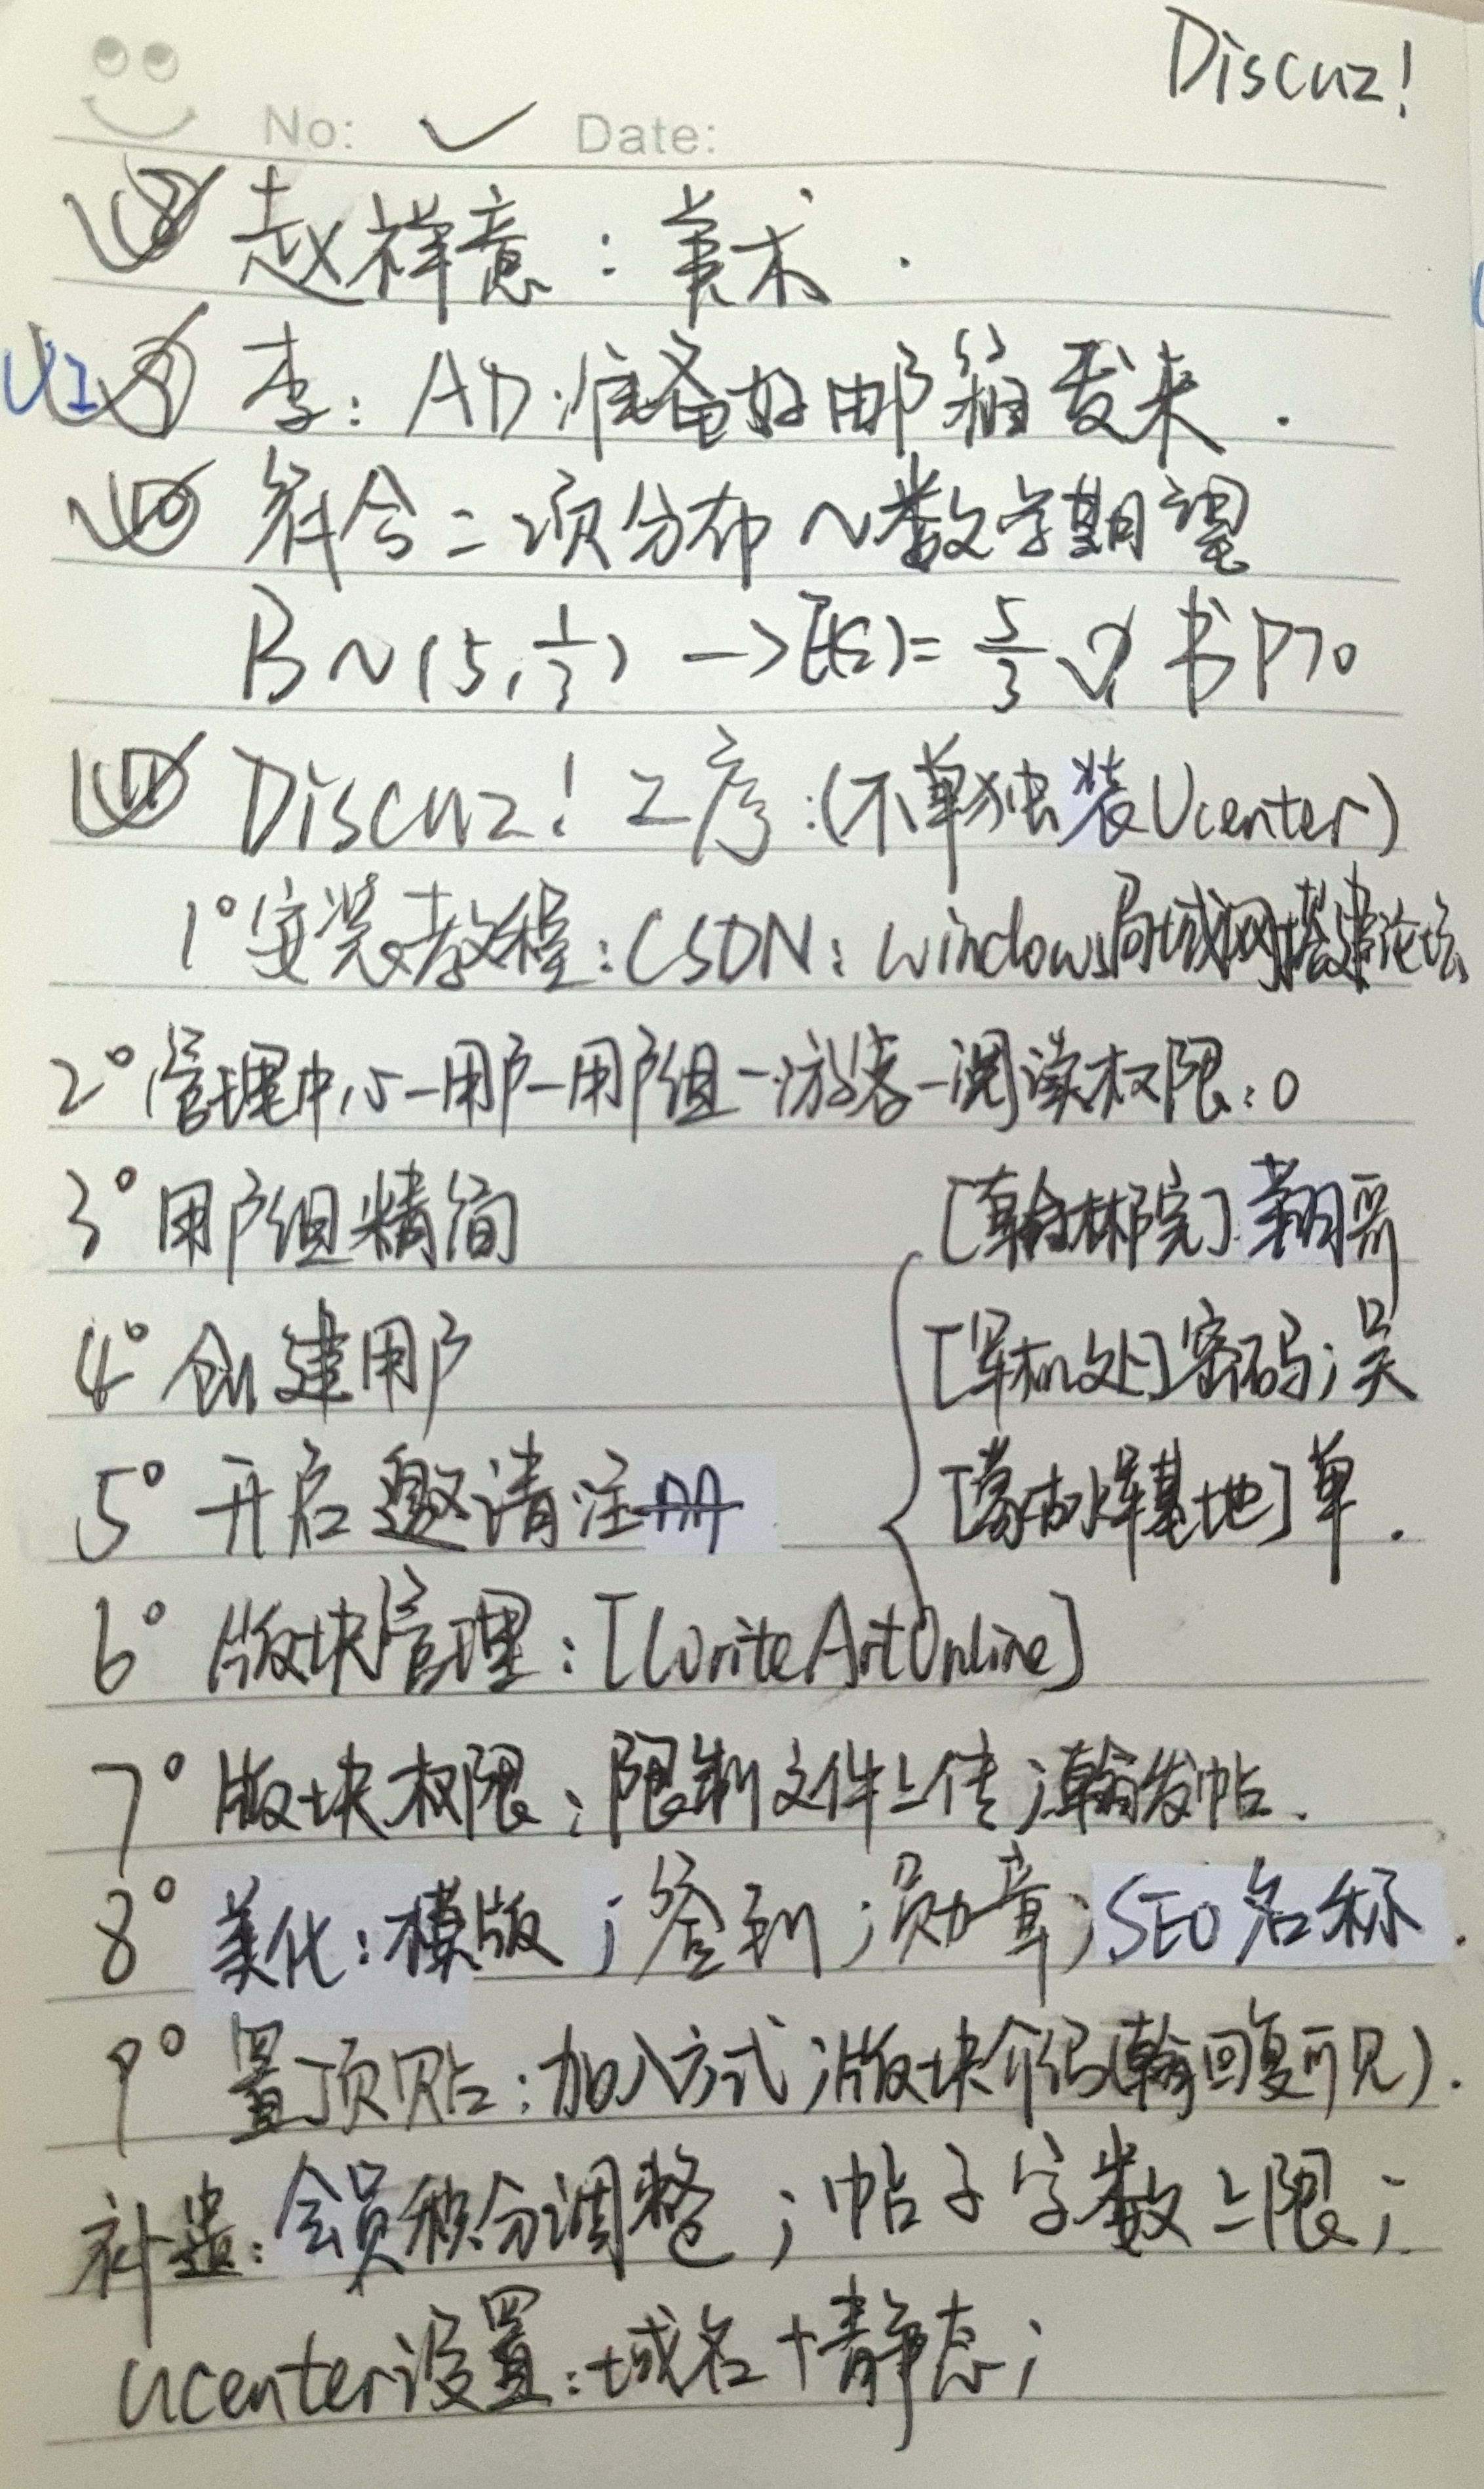 Discuz!
No: Date:
⑧ 赵祥意：美术.
U2 ⑨ 李：AD 准备好邮箱发来.
⑩ 符合二项分布～数学期望
B～(5,1/3) —>E(ξ)=5/3 书P70
⑪ Discuz! 工序:(不单独装Ucenter)
1°安装教程:CSDN:windows局域网搭建论坛
2°管理中心—用户—用户组—游客—阅读权限:0
3°用户组精简
[翰林院]
4°创建用户
[军机处]密码;吴
5°开启邀请注册
基地]单.
6°版块管理:[WriteArtOnline]
7°版块权限;限制文件上传;翰发帖.
8°美化:模版;签到;勋章;SEO名称.
9°置顶贴:加入方式;版块介绍(翰回复可见).
补遗:会员积分调整;帖子字数上限;
Ucenter设置:域名+静态;